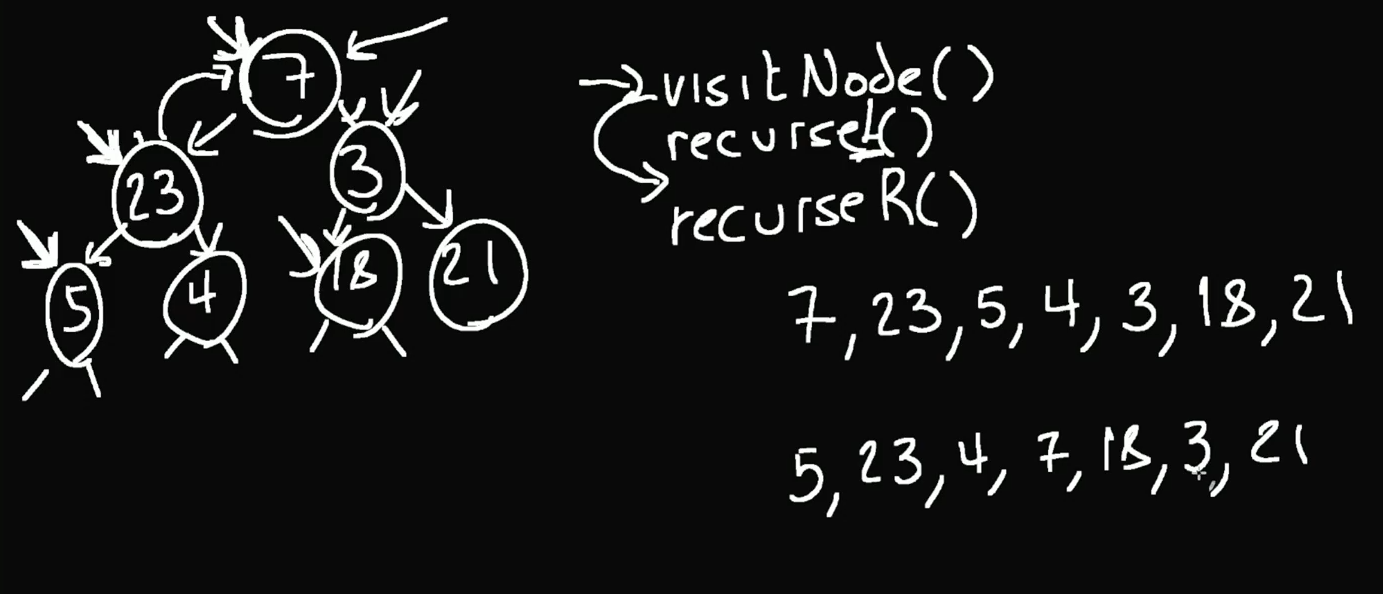 7
23
3
5
4
18
21
visitNode()
recurseL()
recurseR()
7, 23, 5, 4, 3, 18, 21
5, 23, 4, 7, 18, 3, 21